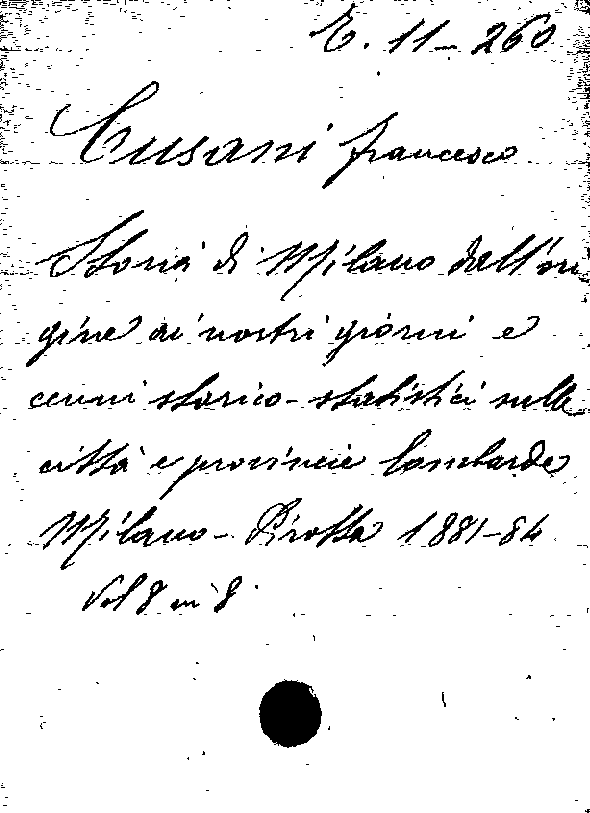 E. 11 - 260
Cusani Francesco
Storia di Milano dall'ori
gine ai nostri giorni e
cenni storico-statistici sulle
città e provincie lombarde
Milano - Pirotta 1881-84
Vol 8 in 8°